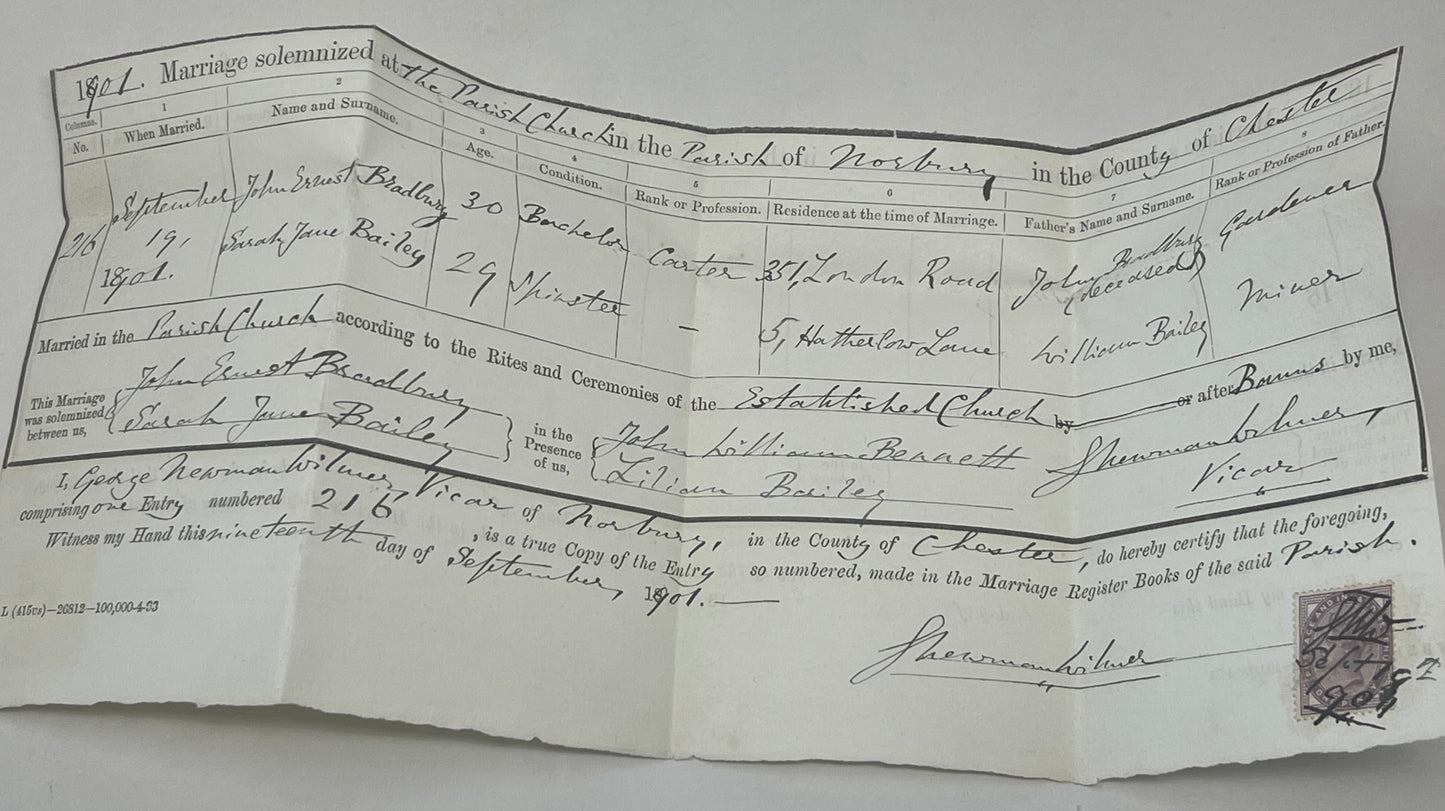 1901. Marriage solemnized at the Parish Church in the Parish of Norbury in the County of Chester
Columns. 1 2 3 4 5 6 7 8
No. When Married. Name and Surname. Age. Condition. Rank or Profession. Residence at the time of Marriage. Father's Name and Surname. Rank or Profession of Father.
216 September 19, 1901. John Ernest Bradbury 30 Bachelor Carter 351, London Road John Bradbury (deceased) Gardener
Sarah Jane Bailey 29 Spinster – 5, Hatherlow Lane William Bailey Miner
Married in the Parish Church according to the Rites and Ceremonies of the Established Church by or after Banns by me,
This Marriage was solemnized between us, John Ernest Bradbury in the Presence of us, John William Bennett G Newman Wilmer,
Sarah Jane Bailey Lilian Bailey Vicar
I, George Newman Wilmer Vicar of Norbury, in the County of Chester, do hereby certify that the foregoing,
comprising one Entry numbered 216, is a true Copy of the Entry so numbered, made in the Marriage Register Books of the said Parish.
Witness my Hand this nineteenth day of September, 1901.
L (415vs)—26812—100,000-4-93
G Newman Wilmer